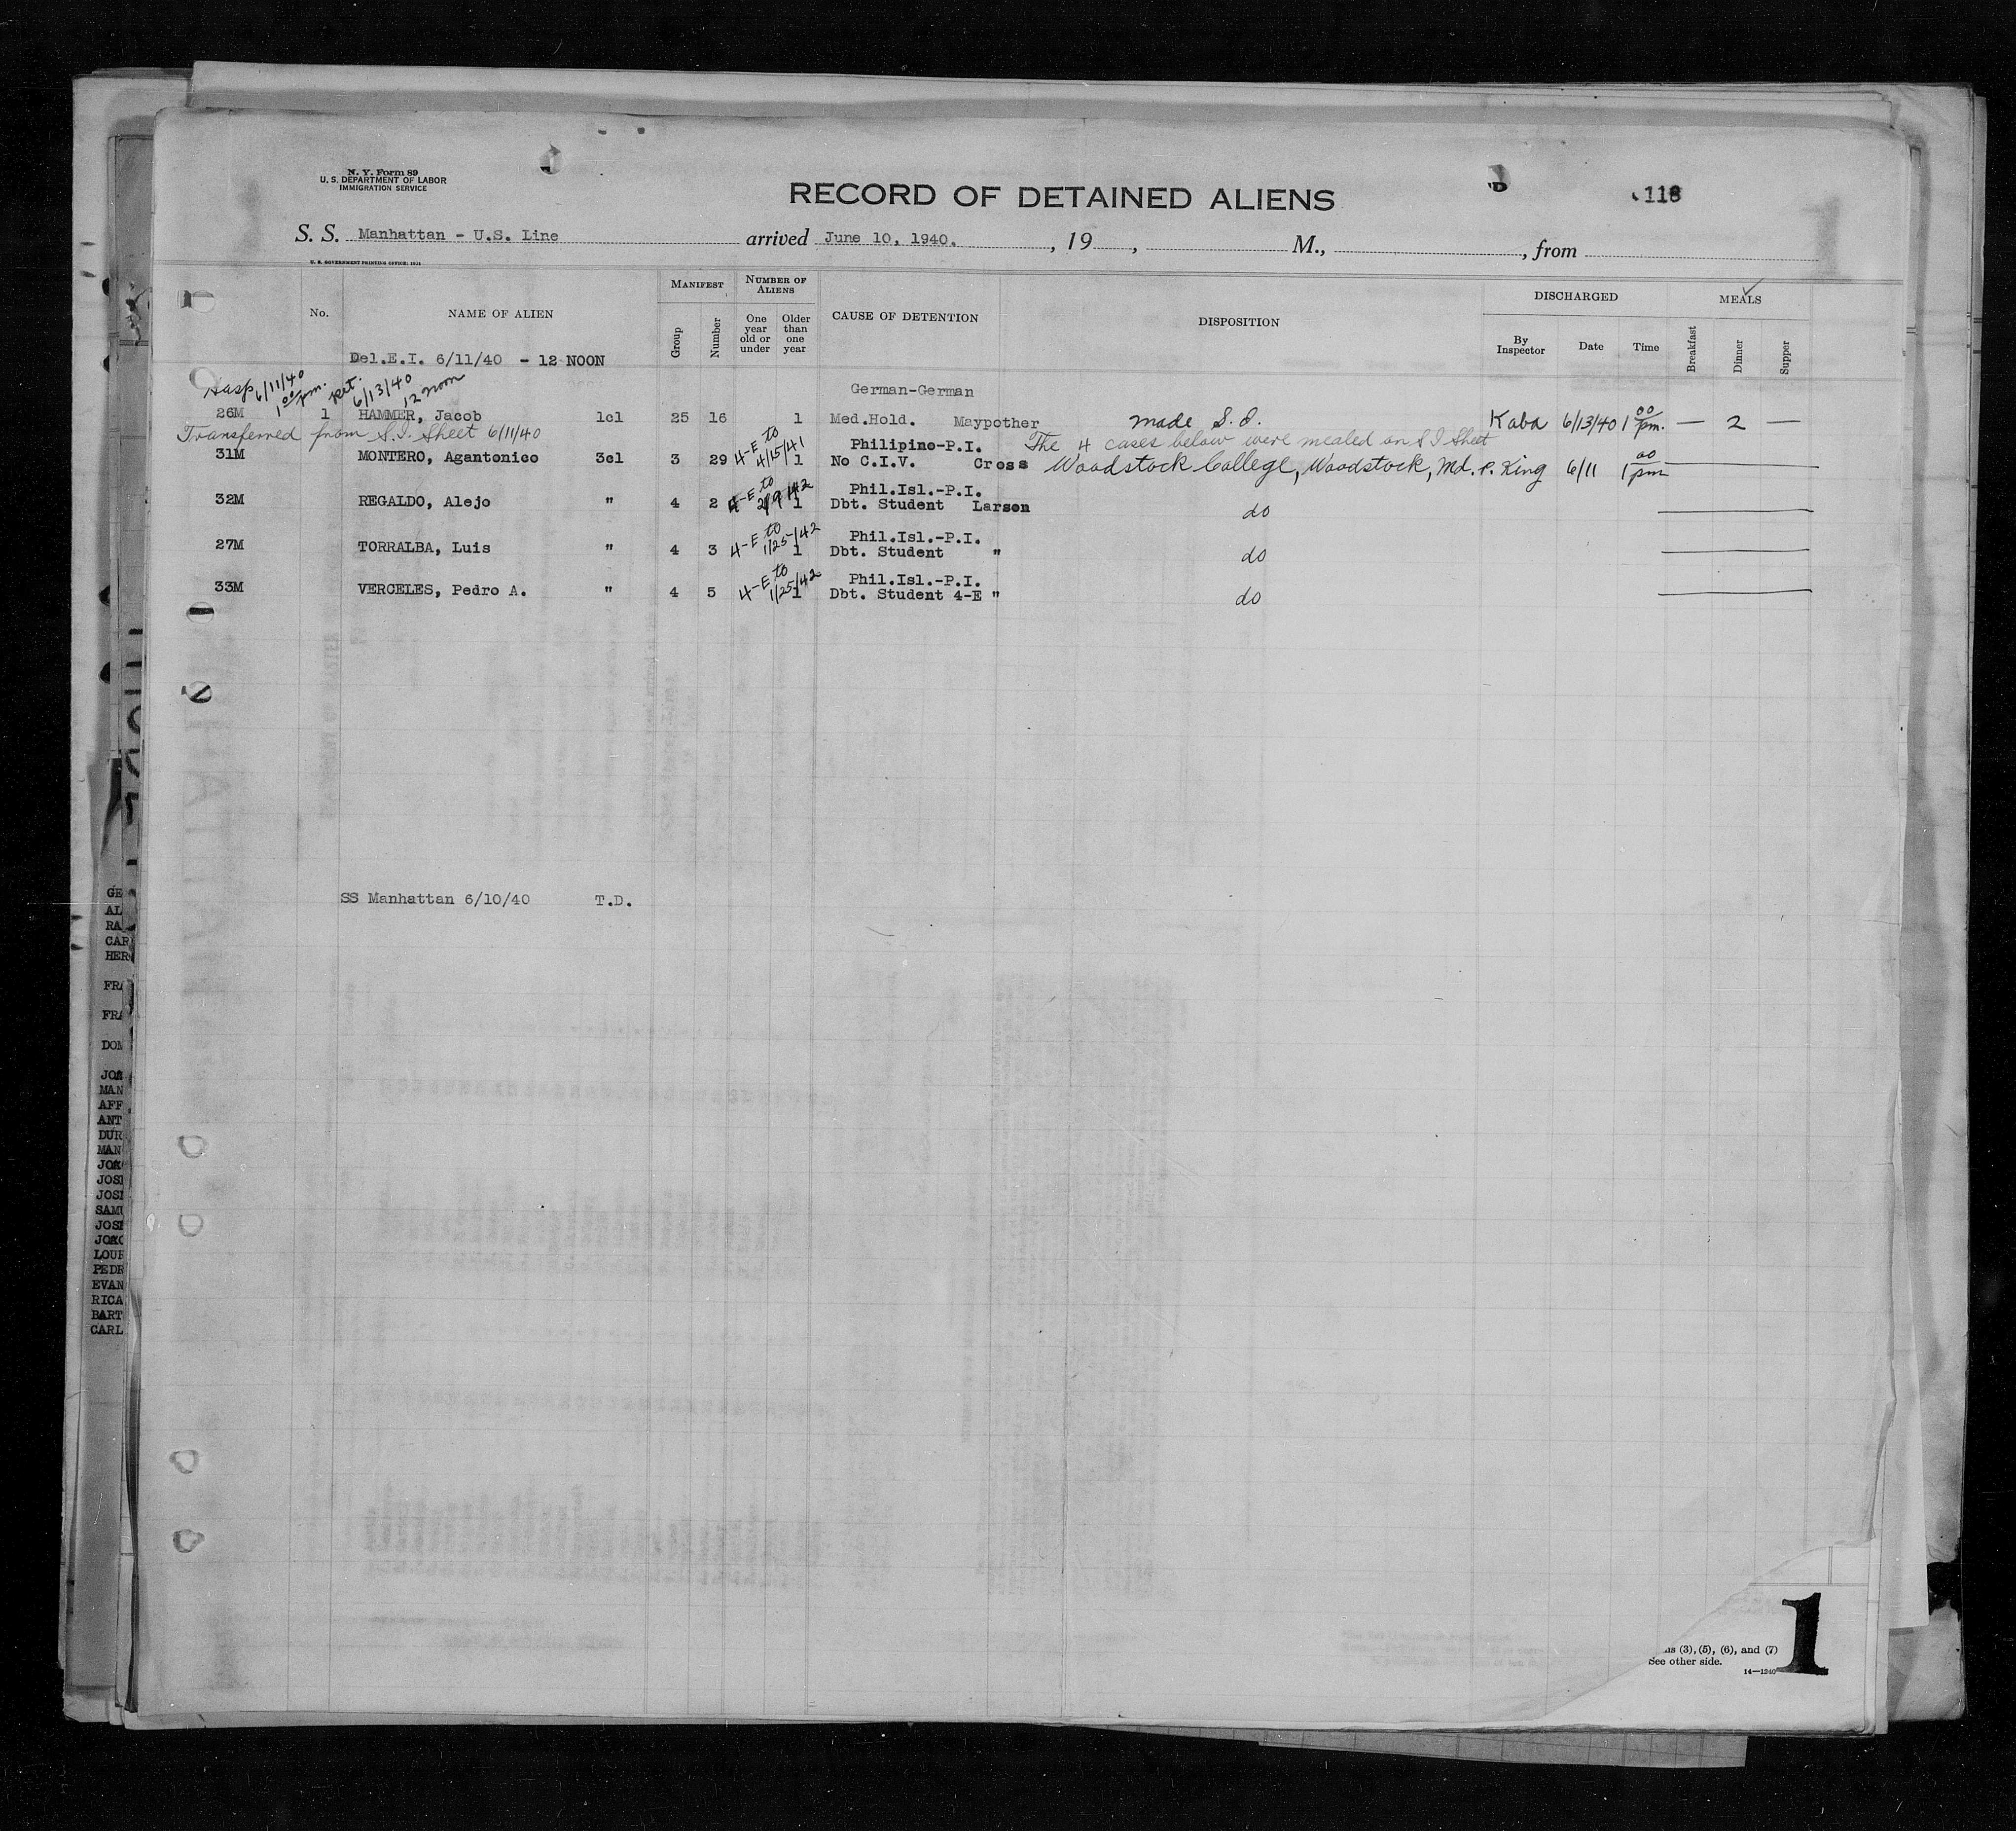 N. Y. Form 89
U. S. DEPARTMENT OF LABOR
IMMIGRATION SERVICE
RECORD OF DETAINED ALIENS
118
S. S. Manhattan - U.S. Line arrived June 10, 1940. , 19 , M., , from
U. S. GOVERNMENT PRINTING OFFICE: 1934
No. NAME OF ALIEN MANIFEST Group Number NUMBER OF ALIENS One year old or under Older than one year CAUSE OF DETENTION DISPOSITION DISCHARGED By Inspector Date Time MEALS Breakfast Dinner Supper
Del.E.I. 6/11/40 - 12 NOON
Hosp 6/11/40 1 00 pm. ret. 6/13/40 12 noon
German-German
26M 1 HAMMER, Jacob 1cl 25 16 1 Med.Hold. Maypother made S.I. Kaba 6/13/40 1 00 pm. — 2 —
Transferred from S.I. Sheet 6/11/40
The 4 cases below were mealed on S I Sheet
4-E to 4/15/41 Philipino-P.I.
31M MONTERO, Agantonico 3cl 3 29 1 No C.I.V. Cross Woodstock College, Woodstock, Md. P. King 6/11 1 00 pm
4-E to 2/9/42 Phil.Isl.-P.I.
32M REGALDO, Alejo " 4 2 1 Dbt. Student Larson do
4-E to 1/25/42 Phil.Isl.-P.I.
27M TORRALBA, Luis " 4 3 1 Dbt. Student " do
4-E to 1/25/42 Phil.Isl.-P.I.
33M VERCELES, Pedro A. " 4 5 1 Dbt. Student 4-E " do
SS Manhattan 6/10/40 T.D.
GE
AL
RA
CAR
HER
FRA
FRA
DOM
JOA
MAN
AFF
ANT
DUR
MAN
JOA
JOSE
JOSE
SAMU
JOSE
JOAO
LOUR
PEDR
EVAN
RICA
BART
CARL
(3), (5), (6), and (7)
See other side.
14—1240
1